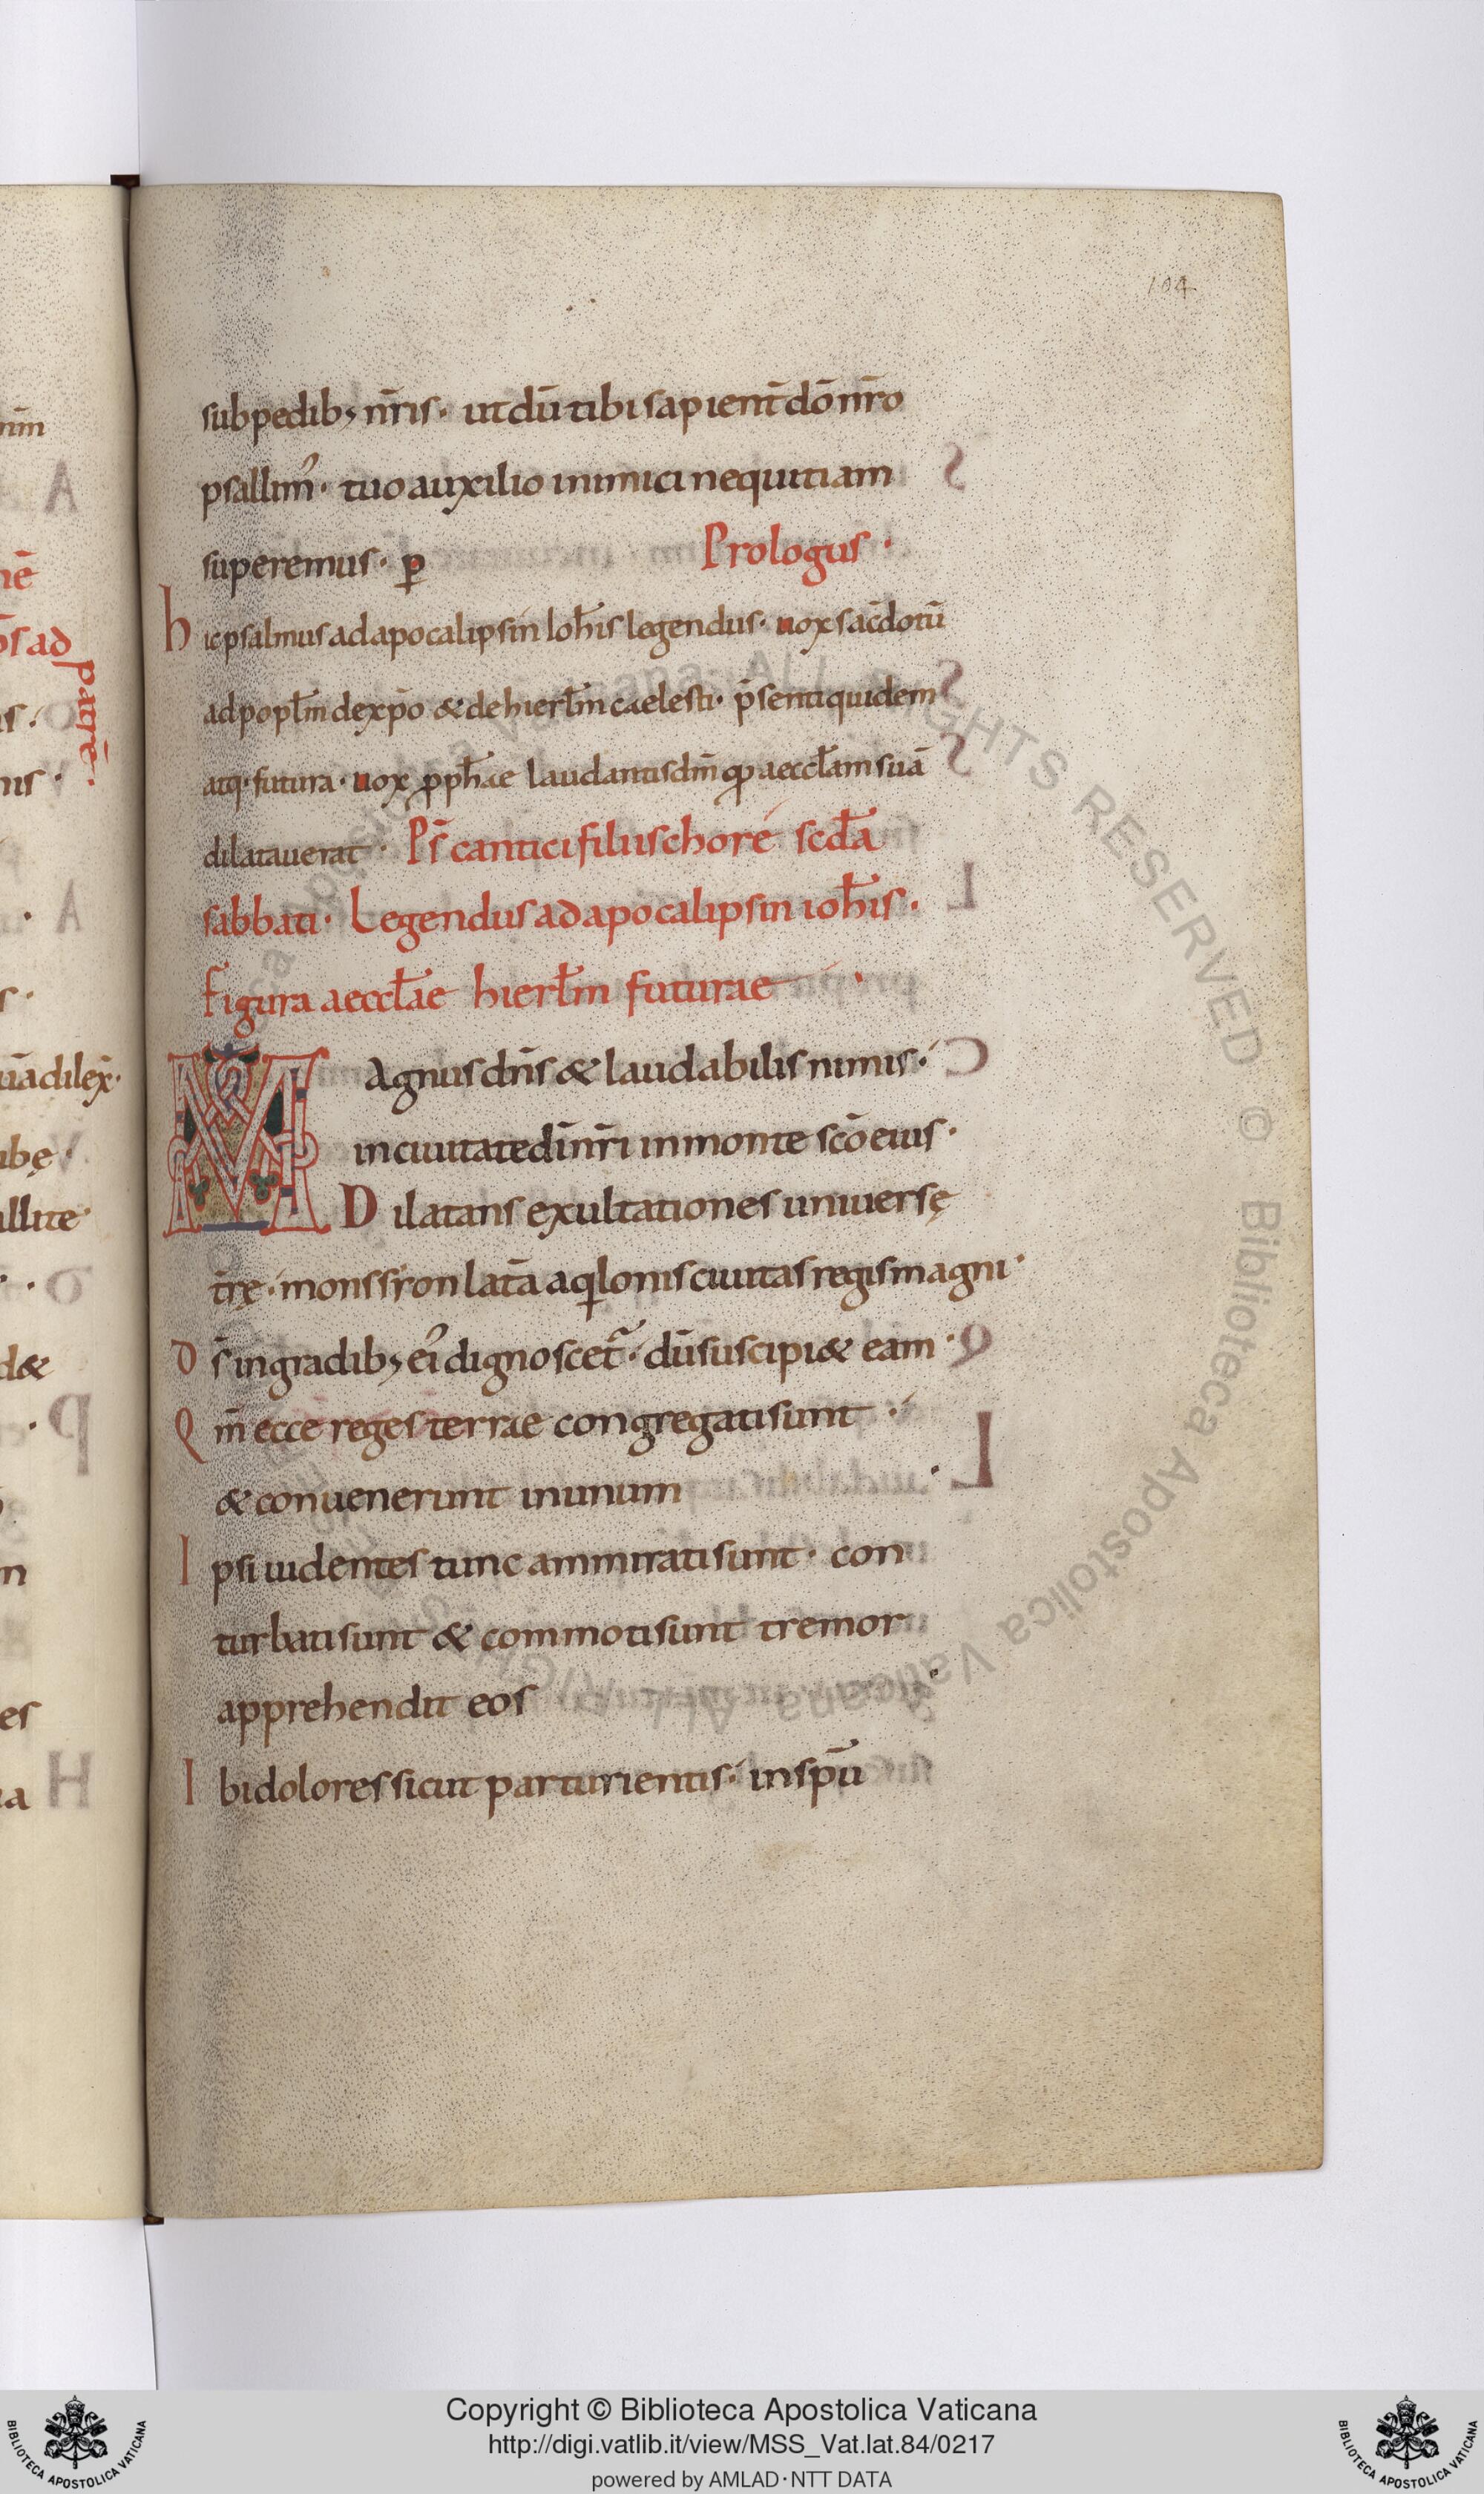 104
sub pedib; nr̄is · ut dū tibi sapient̄ dō nr̄o
psallim᾽ · tuo auxilio inimici nequitiam
superemus · p̲
Prologus ·
hic psalmus ad apocalipsin Ioh̄is legendus · uox sac̄dotū
ad popl̄m de xp̄o & de hierl̄m caelesti · p̄senti quidem
atq· futura · uox ꝓph̄ae laudantis dm̄ qꝺ aeccl̄am suā
dilatauerat · Ps̄ cantici filiis chore scd̄a
sabbati · Legendus ad apocalipsin ioh̄is ·
Figura aeccl̄ae hierl̄m futurae ·
MAgnus dn̄s & laudabilis nimis ·
in ciuitate dī nr̄i in monte scō eius ·
Dilatans exultationes uniuersę
tr̄ę · mons sion lat̄a aqlonis ciuitas regis magni ·
Ds̄ in gradib; ei᾽ dignoscet̄ · dū suscipi& eam ·
Qm̄ ecce reges terrae congregati sunt ·
& conuenerunt in unum ·
Ipsi uidentes tunc ammirati sunt · con
turbati sunt & commoti sunt tremor
apprehendit eos ·
Ibi dolores sicut parturientis · in spū
nim
A
nē
ps̄ ad
patrē ·
is ·
nis ·
uā dilex̄ ·
ubę ·
allite
d&
n
es
ia
Biblioteca Apostolica Vaticana ALL RIGHTS RESERVED ©
Copyright © Biblioteca Apostolica Vaticana
http://digi.vatlib.it/view/MSS_Vat.lat.84/0217
powered by AMLAD·NTT DATA
BIBLIOTECA APOSTOLICA VATICANA
BIBLIOTECA APOSTOLICA VATICANA